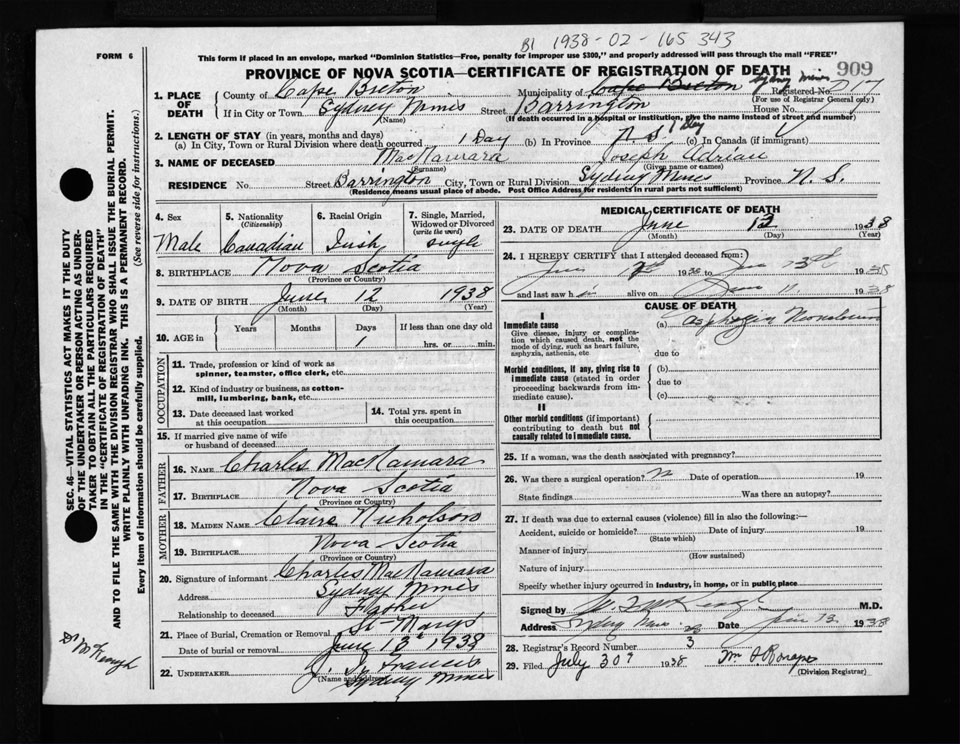 B1 1938-02-165 343
FORM 6
This form if placed in an envelope, marked "Dominion Statistics—Free, penalty for improper use $300," and properly addressed will pass through the mail "FREE"
PROVINCE OF NOVA SCOTIA—CERTIFICATE OF REGISTRATION OF DEATH
909
1. PLACE OF DEATH
County of Cape Breton Municipality of Cape Breton Sydney Mines Registered No.
(For use of Registrar General only)
If in City or Town Sydney Mines Street Barrington House No.
(Name) (If death occurred in a hospital or institution, give the name instead of street and number)
2. LENGTH OF STAY (in years, months and days)
(a) In City, Town or Rural Division where death occurred 1 Day (b) In Province N.S. 1 Day (c) In Canada (if immigrant)
3. NAME OF DECEASED MacNamara Joseph Adrian
(Surname) (Given name or names)
RESIDENCE No. Street Barrington City, Town or Rural Division Sydney Mines Province N. S.
(Residence means usual place of abode. Post Office Address for residents in rural parts not sufficient)
4. Sex Male
5. Nationality (Citizenship) Canadian
6. Racial Origin Irish
7. Single, Married, Widowed or Divorced (write the word) single
8. BIRTHPLACE Nova Scotia
(Province or Country)
9. DATE OF BIRTH June 12 1938
(Month) (Day) (Year)
10. AGE in Years Months Days If less than one day old
1 hrs. or min.
OCCUPATION
11. Trade, profession or kind of work as spinner, teamster, office clerk, etc.
12. Kind of industry or business, as cotton-mill, lumbering, bank, etc.
13. Date deceased last worked at this occupation
14. Total yrs. spent in this occupation
15. If married give name of wife or husband of deceased
FATHER
16. NAME Charles MacNamara
17. BIRTHPLACE Nova Scotia
(Province or Country)
MOTHER
18. MAIDEN NAME Claire Nicholson
19. BIRTHPLACE Nova Scotia
(Province or Country)
20. Signature of informant Charles MacNamara
Address Sydney Mines
Relationship to deceased Father
21. Place of Burial, Cremation or Removal St-Marys
Date of burial or removal June 13 1938
22. UNDERTAKER Francis
(Name and address) Sydney Mines
MEDICAL CERTIFICATE OF DEATH
23. DATE OF DEATH June 13 1938
(Month) (Day) (Year)
24. I HEREBY CERTIFY that I attended deceased from:
June 1938 to June 13th 1938
and last saw h alive on June 1938
CAUSE OF DEATH
I
Immediate cause
Give disease, injury or complication which caused death, not the mode of dying, such as heart failure, asphyxia, asthenia, etc
(a)
due to
Morbid conditions, if any, giving rise to immediate cause (stated in order proceeding backwards from immediate cause).
(b)
due to
(c)
II
Other morbid conditions (if important) contributing to death but not causally related to immediate cause.
25. If a woman, was the death associated with pregnancy?
26. Was there a surgical operation? Date of operation 19
State findings Was there an autopsy?
27. If death was due to external causes (violence) fill in also the following:—
Accident, suicide or homicide? Date of injury 19
(State which)
Manner of injury
(How sustained)
Nature of injury
Specify whether injury occurred in industry, in home, or in public place
Signed by M.D.
Address Sydney Mines Date June 13 1938
28. Registrar's Record Number 3
29. Filed July 30 1938
(Division Registrar)
SEC. 46—VITAL STATISTICS ACT MAKES IT THE DUTY
OF THE UNDERTAKER OR PERSON ACTING AS UNDER-
TAKER TO OBTAIN ALL THE PARTICULARS REQUIRED
IN THE "CERTIFICATE OF REGISTRATION OF DEATH"
AND TO FILE THE SAME WITH THE DIVISION REGISTRAR WHO SHALL ISSUE THE BURIAL PERMIT.
WRITE PLAINLY WITH UNFADING INK. THIS IS A PERMANENT RECORD.
Every item of information should be carefully supplied. (See reverse side for instructions.)